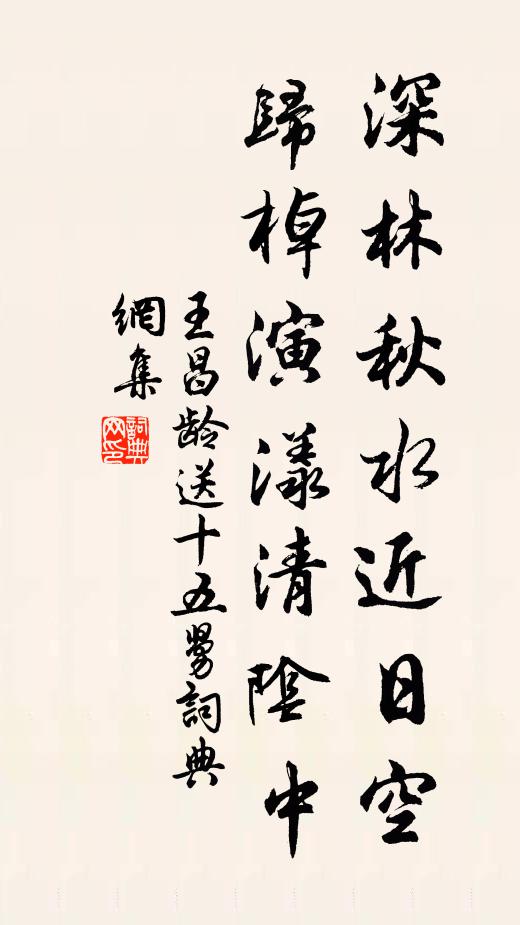 深林秋水近日空
歸棹演漾清陰中
王昌齡送十五舅詞典
網集
詞典
网印